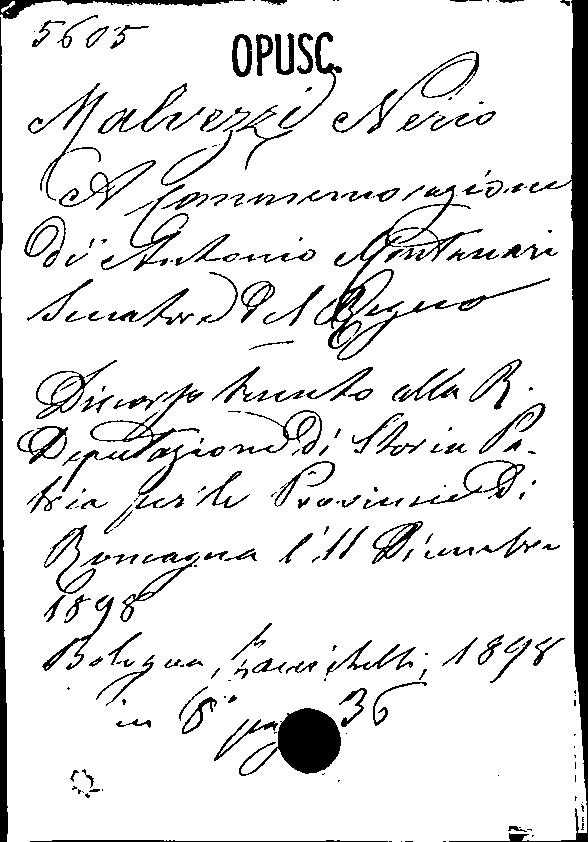 5605
OPUSC.
Malvezzi Nerio
A Commemorazione
di Antonio Montanari
Senatore del Regno
Discorso tenuto alla R.
Deputazione di Storia Pa-
tria per le Provincie di
Romagna l'11 Dicembre
1898
Bologna, Zanichelli, 1898
in 8° pag 36